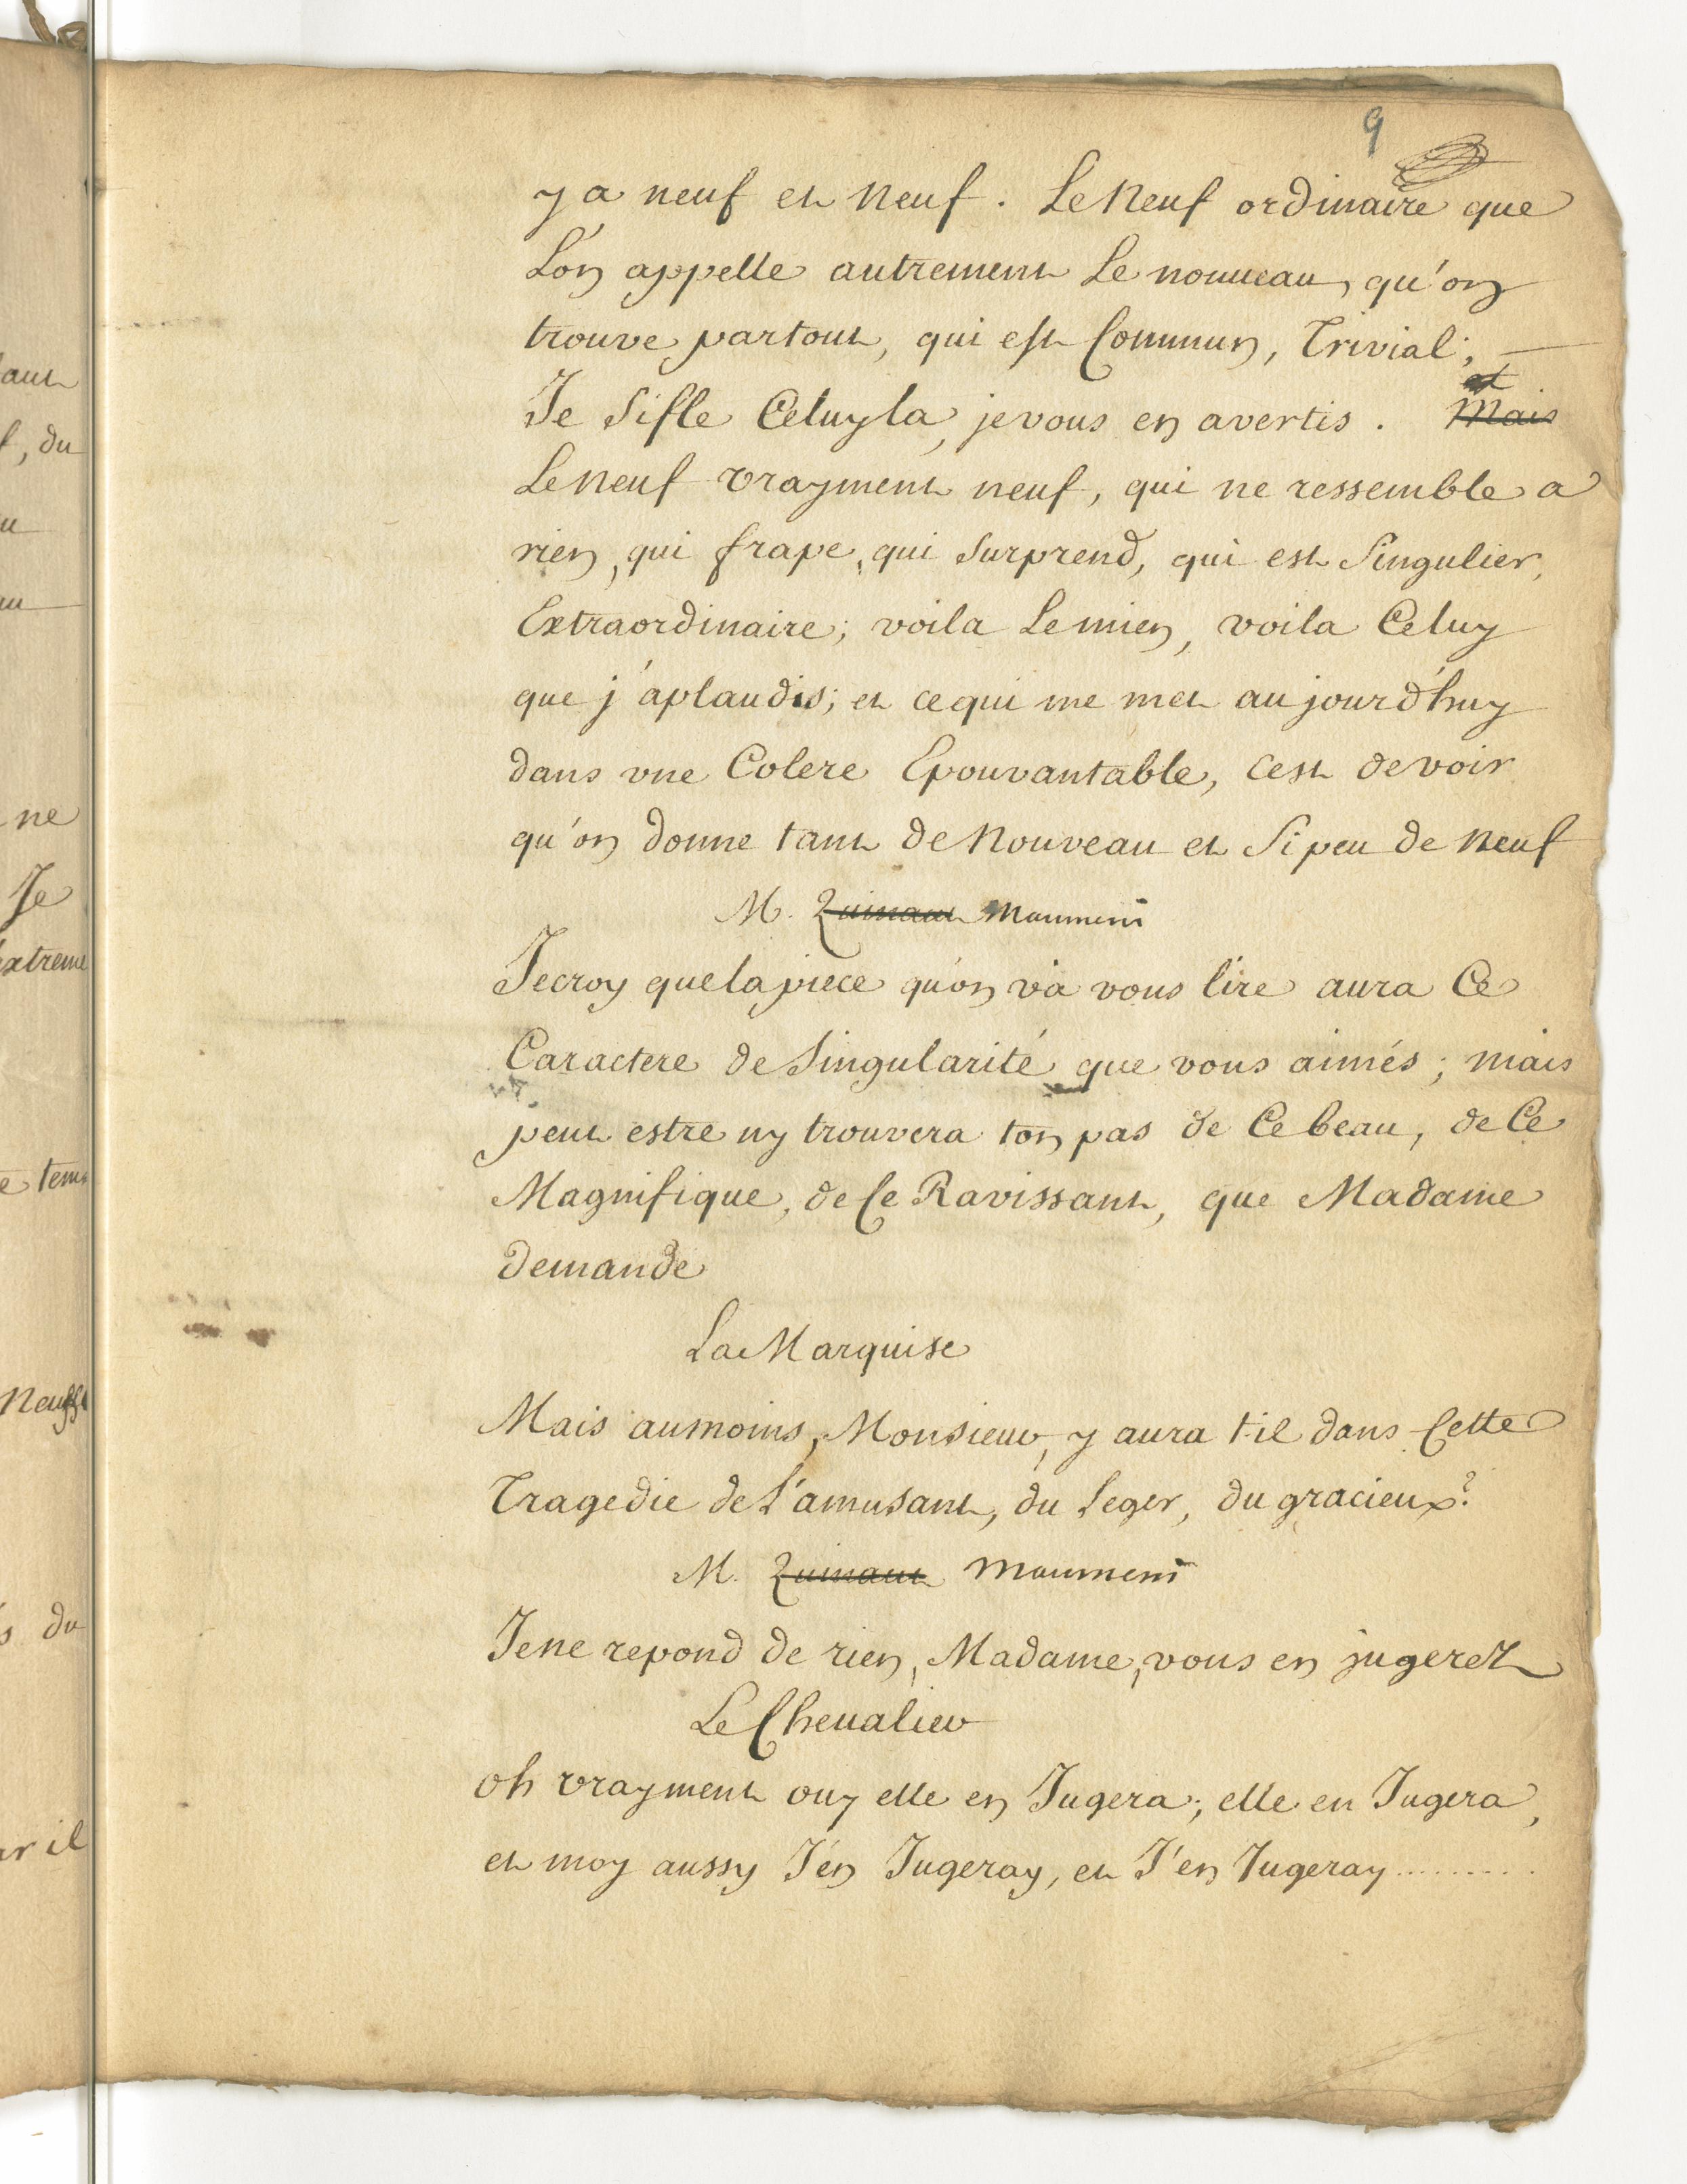 9
y a neuf et neuf. Le Neuf ordinaire que
L'on appelle autrement Le nouueau, qu'on
trouve partout, qui est Commun, Trivial;
Je Sifle Celuy la, je vous en avertis. Mais et
Le neuf vrayment neuf, qui ne ressemble a
rien, qui frape, qui Surprend, qui est Singulier,
Extraordinaire; voila Le mien, voila Celuy
que j'aplaudis; et ce qui me met aujourd'huy
dans vne Colere Epouvantable, cest de voir
qu'on donne tant de Nouveau et Si peu de Neuf
M. Quinaut Maument
Je croy que la piece qu'on va vous lire aura Ce
Caractere de Singularité que vous aimés; mais
peut estre ny trouvera ton pas de Ce beau, de Ce
Magnifique, de Ce Ravissant, que Madame
demande
La Marquise
Mais au moins, Monsieur, y aura t-il dans Cette
Tragedie de L'amusant, du Leger, du gracieux?
M. Quinaut Maument
Je ne repond de rien, Madame, vous en jugerez
Le Cheualier
oh vrayment ouy elle en Jugera; elle en Jugera,
et moy aussy J'en Jugeray, et J'en Jugeray .........
ant
f, du
u
ne
Je
extreme
e tems
s du
ar il